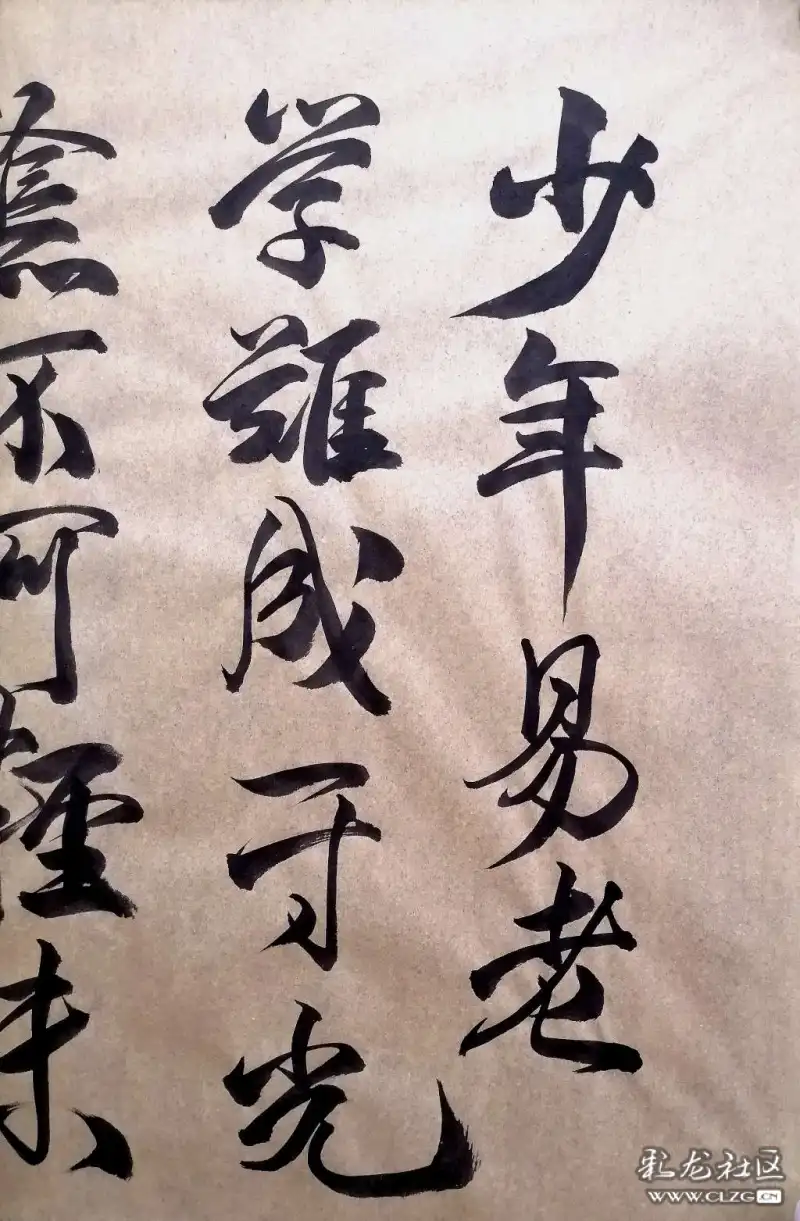 少年易老
学難成一寸光
陰不可輕未
彩龙社区
WWW.CLZG.CN